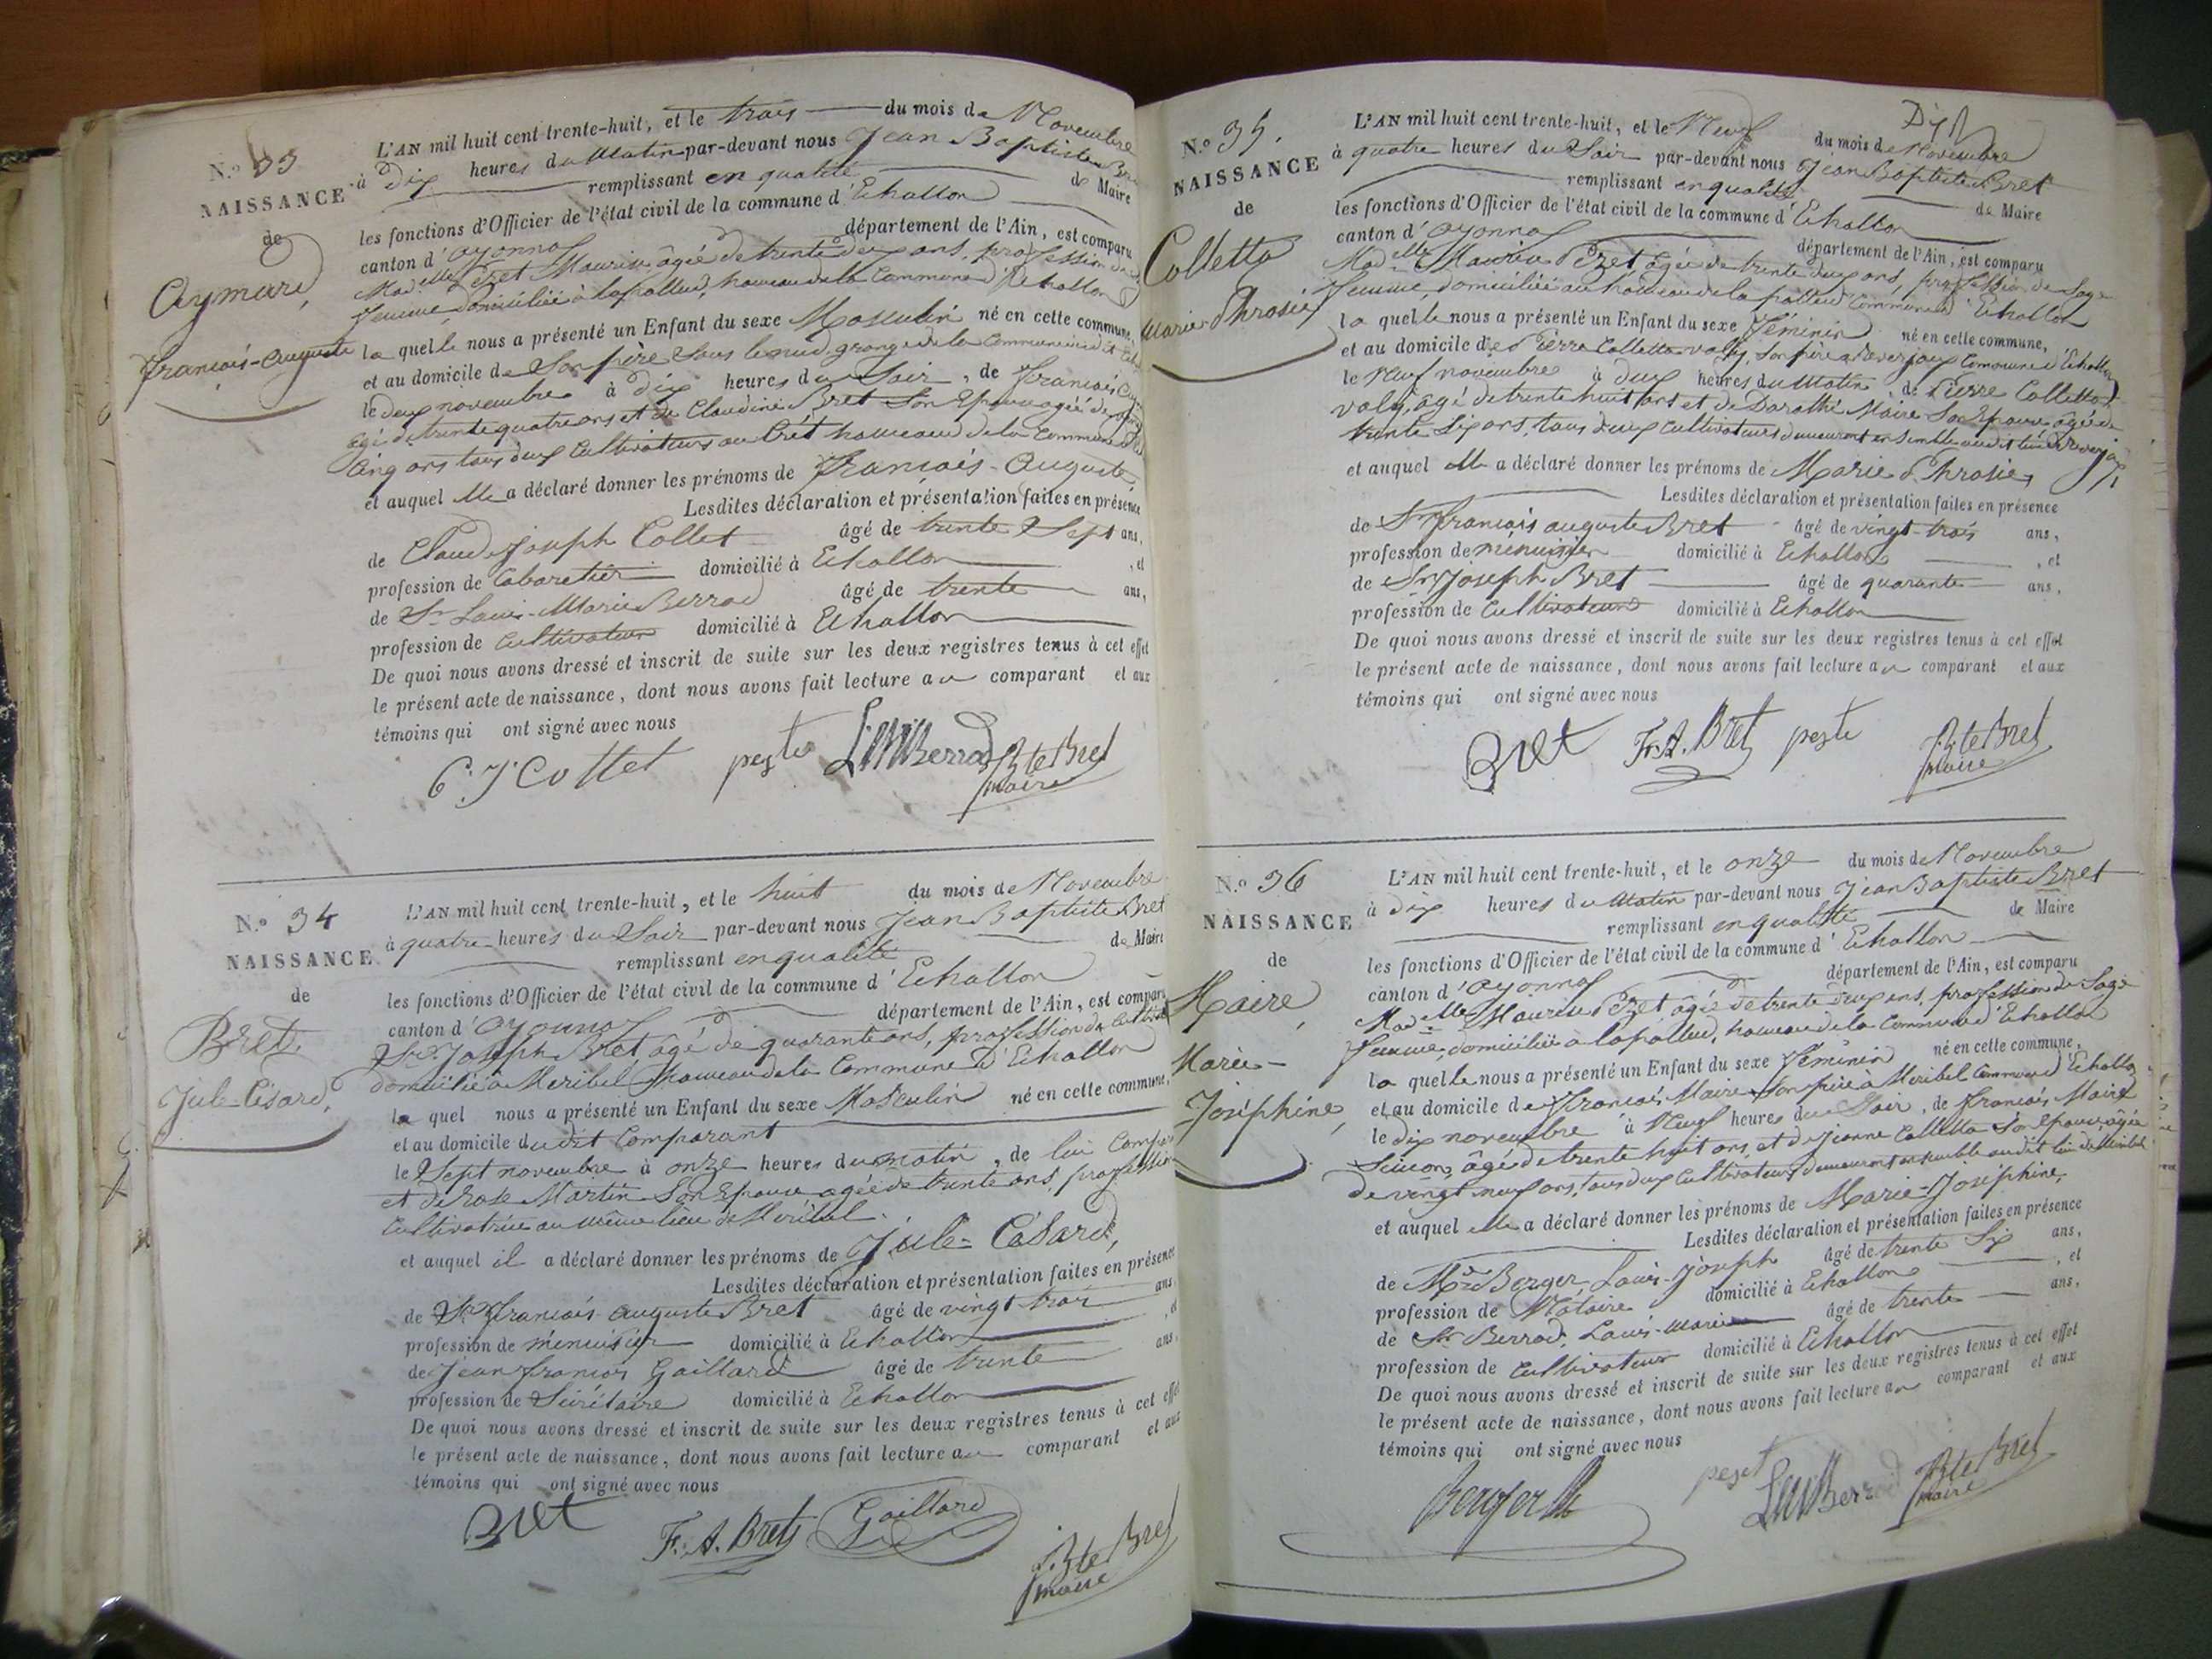 N.º 33
NAISSANCE
de
Aymard,
françois-auguste
L'AN mil huit cent trente-huit, et le trois du mois de Novembre
à Dix heures du Matin par-devant nous Jean Baptiste Bre
remplissant en qualité de Maire
les fonctions d'Officier de l'état civil de la commune d'Echallon
canton d'Oyonnax département de l'Ain, est comparu
Mad.elle Pezet Maurice âgée de trente deux ans, profession de
femme, domiciliée à lapallud, hameau de la Commune d'Echallon
la quelle nous a présenté un Enfant du sexe Masculin né en cette commune,
et au domicile de Son père Sous le nud, grange de la Commune
le deux novembre à dix heures du Soir, de françois
âgé de trente quatre ans et de Claudine Bret Son Epouse agée de
Cinq ans tous deux Cultivateurs au Crét hameau de la Commune
et auquel elle a déclaré donner les prénoms de françois-Auguste,
Lesdites déclaration et présentation faites en présence
de Claude Joseph Collet âgé de trente Sept ans,
profession de Cabaretier domicilié à Echallon, et
de Sr. Louis-Marie Berrod âgé de trente ans,
profession de Cultivateur domicilié à Echallon
De quoi nous avons dressé et inscrit de suite sur les deux registres tenus à cet effet
le présent acte de naissance, dont nous avons fait lecture au comparant et aux
témoins qui ont signé avec nous
C. J Collet pezet LM Berrod J. Bte Bret
maire
N.º 34
NAISSANCE
de
Bret,
Jule-Césard,
L'AN mil huit cent trente-huit, et le huit du mois de Novembre
à quatre heures du Soir par-devant nous Jean Baptiste Bret
remplissant en qualité de Maire
les fonctions d'Officier de l'état civil de la commune d'Echallon
canton d'Oyonnax département de l'Ain, est comparu
Sr. Joseph Bret, âgé de quarante ans, profession de
domicilié à Meribel hameau de la Commune d'Echallon
le quel nous a présenté un Enfant du sexe Masculin né en cette commune,
et au domicile du dit Comparant
le Sept novembre à onze heures du matin, de lui
et de Rose Martin Son Epouse agée de trente ans, profession
Cultivatrice au même lieu de Meribel.
et auquel il a déclaré donner les prénoms de Jule-Césard,
Lesdites déclaration et présentation faites en présence
de Sr. françois auguste Bret âgé de vingt trois ans,
profession de menuisier domicilié à Echallon, et
de Jean françois Gaillard âgé de trente ans,
profession de Sécrétaire domicilié à Echallon
De quoi nous avons dressé et inscrit de suite sur les deux registres tenus à cet effet
le présent acte de naissance, dont nous avons fait lecture au comparant et aux
témoins qui ont signé avec nous
Bret F. A. Bret Gaillard
J. Bte Bret
maire
N.º 35.
NAISSANCE
de
Colletta
Marie Phrosie,
L'AN mil huit cent trente-huit, et le Neuf du mois de Novembre
à quatre heures du Soir par-devant nous Jean Baptiste Bret
remplissant en qualité de Maire
les fonctions d'Officier de l'état civil de la commune d'Echallon
canton d'Oyonnax département de l'Ain, est comparu
Mad.elle Maurice Pezet âgée de trente deux ans, profession de Sage
femme, domiciliée au hameau de la pallud Commune d'Echallon
la quelle nous a présenté un Enfant du sexe féminin né en cette commune,
et au domicile de Pierre Colletta Son père Commune d'Echallon
le Neuf novembre à deux heures du Matin de Pierre Colletta
âgé de trente huit ans et de Dorothé Maire Son Epouse âgée de
trente Six ans, tous deux Cultivateurs demeurant ensemble au dit lieu
et auquel elle a déclaré donner les prénoms de Marie Phrosie,
Lesdites déclaration et présentation faites en présence
de Sr. françois auguste Bret âgé de vingt-trois ans,
profession de menuisier domicilié à Echallon, et
de Sr. Joseph Bret âgé de quarante ans,
profession de Cultivateur domicilié à Echallon
De quoi nous avons dressé et inscrit de suite sur les deux registres tenus à cet effet
le présent acte de naissance, dont nous avons fait lecture au comparant et aux
témoins qui ont signé avec nous
Bret F. A. Bret pezet J. Bte Bret
maire
N.º 36
NAISSANCE
de
Maire,
Marie-
Joséphine,
L'AN mil huit cent trente-huit, et le onze du mois de Novembre
à dix heures du Matin par-devant nous Jean Baptiste Bret
remplissant en qualité de Maire
les fonctions d'Officier de l'état civil de la commune d'Echallon
canton d'Oyonnax département de l'Ain, est comparu
Mad.elle Maurice Pezet âgée de trente deux ans, profession de Sage
femme, domiciliée à lapallud, hameau de la Commune d'Echallon
la quelle nous a présenté un Enfant du sexe féminin né en cette commune,
et au domicile de françois Maire Son père à Meribel Commune d'Echallon
le dix novembre à Neuf heures du Soir, de françois Maire
âgé de trente huit ans, et de Jeanne Colletta Son epouse, âgée
de vingt neuf ans, tous deux Cultivateurs demeurant ensemble au dit lieu de Meribel
et auquel elle a déclaré donner les prénoms de Marie-Joséphine,
Lesdites déclaration et présentation faites en présence
de Mr. Berger, Louis-Joseph âgé de trente Six ans,
profession de Notaire domicilié à Echallon, et
de Sr. Berrod, Louis-Marie âgé de trente ans,
profession de Cultivateur domicilié à Echallon
De quoi nous avons dressé et inscrit de suite sur les deux registres tenus à cet effet
le présent acte de naissance, dont nous avons fait lecture au comparant et aux
témoins qui ont signé avec nous
Berger pezet LM Berrod J. Bte Bret
maire